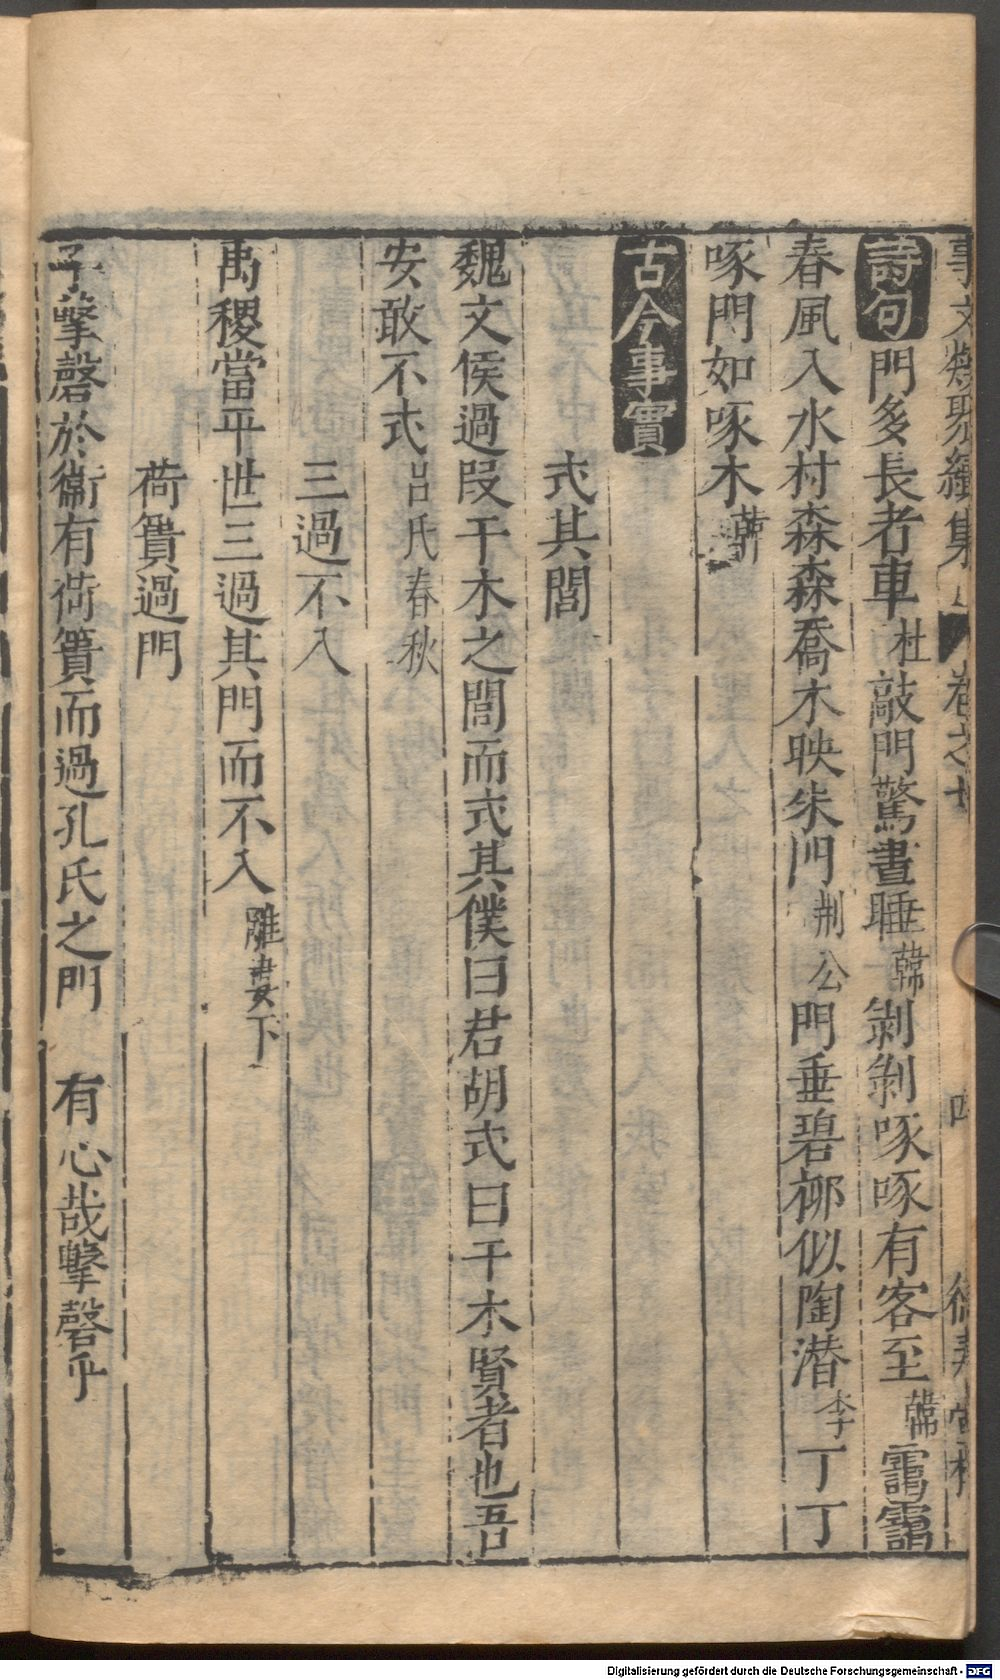 事文類聚續集 卷之七 四 德壽堂梓
詩句 門多長者車 杜 敲門驚晝睡 韓 剝剝啄啄有客至 韓 靄靄
春風入水村森森喬木映朱門 荆公 門垂碧栁似陶潜 李 丁丁
啄門如啄木 韓
古今事實
式其閭
魏文侯過段干木之閭而式其僕曰君胡式曰干木賢者也吾
安敢不式 吕氏春秋
三過不入
禹稷當平世三過其門而不入 離婁下
荷簣過門
子擊磬於衞有荷簣而過孔氏之門 有心哉擊磬乎
Digitalisierung gefördert durch die Deutsche Forschungsgemeinschaft - DFG